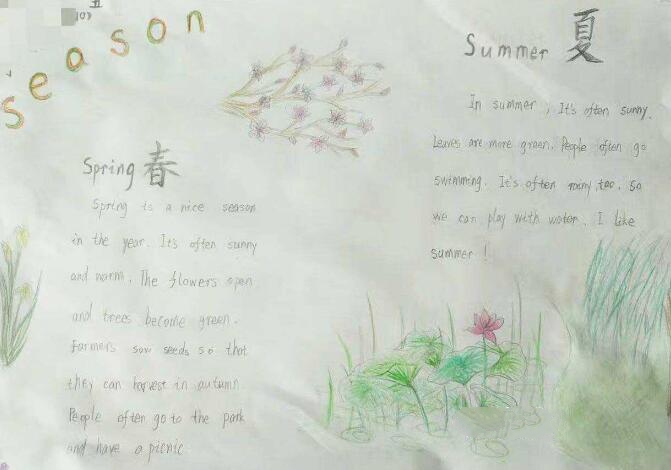 season
Spring 春
Spring is a nice season
in the year. It's often sunny
and warm. The flowers open
and trees become green.
Farmers sow seeds so that
they can harvest in autumn
People often go to the park
and have a picnic
Summer 夏
In summer, It's often sunny.
Leaves are more green. People often go
swimming. It's often rainy too. So
we can play with water. I like
summer!